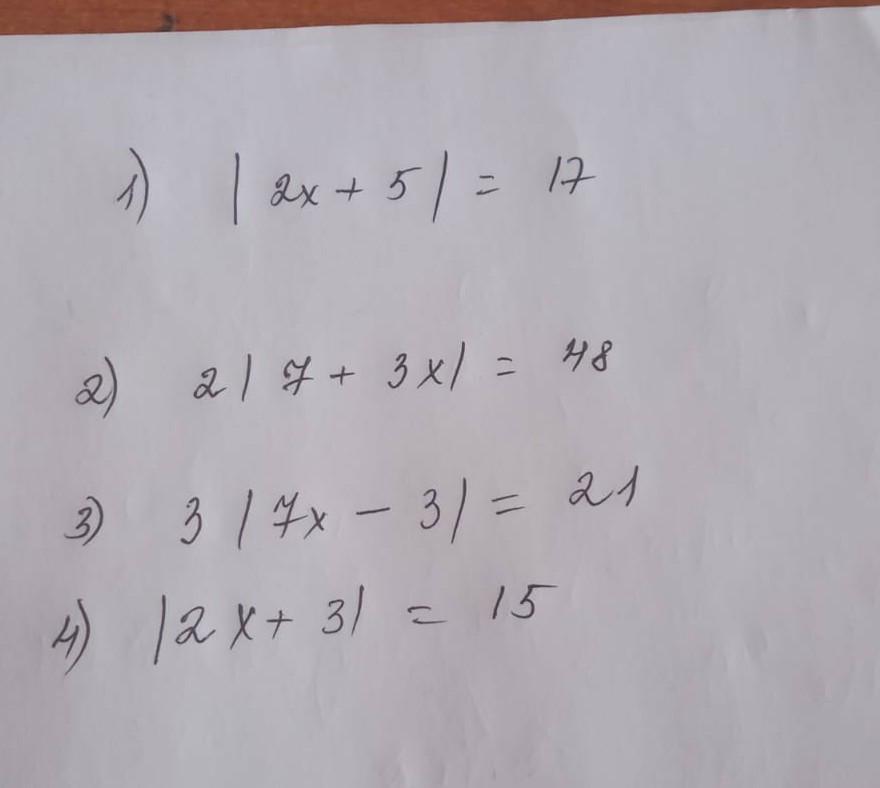 1) | 2x + 5 | = 17
2) 2 | 7 + 3x | = 48
3) 3 | 7x - 3 | = 21
4) | 2x + 3 | = 15